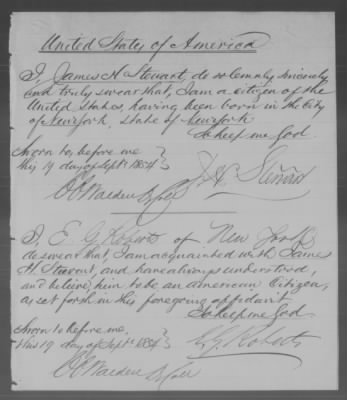 United States of America
I, James H Steuart, do solemnly, sincerely
and truly swear that, I am a citizen of the
United States, having been born in the City
of New York, State of New York
So help me God.
Sworn to, before me
this 19 day of Sept. 1854
J. H. Steuart
I, E. G. Roberts of New York
do swear that, I am acquainted with James
H. Steuart, and have always understood,
and believe him to be an American Citizen,
as set forth in his foregoing affidavit
So help me God.
Sworn to before me,
this 19 day of Sept. 1854
E. G. Roberts